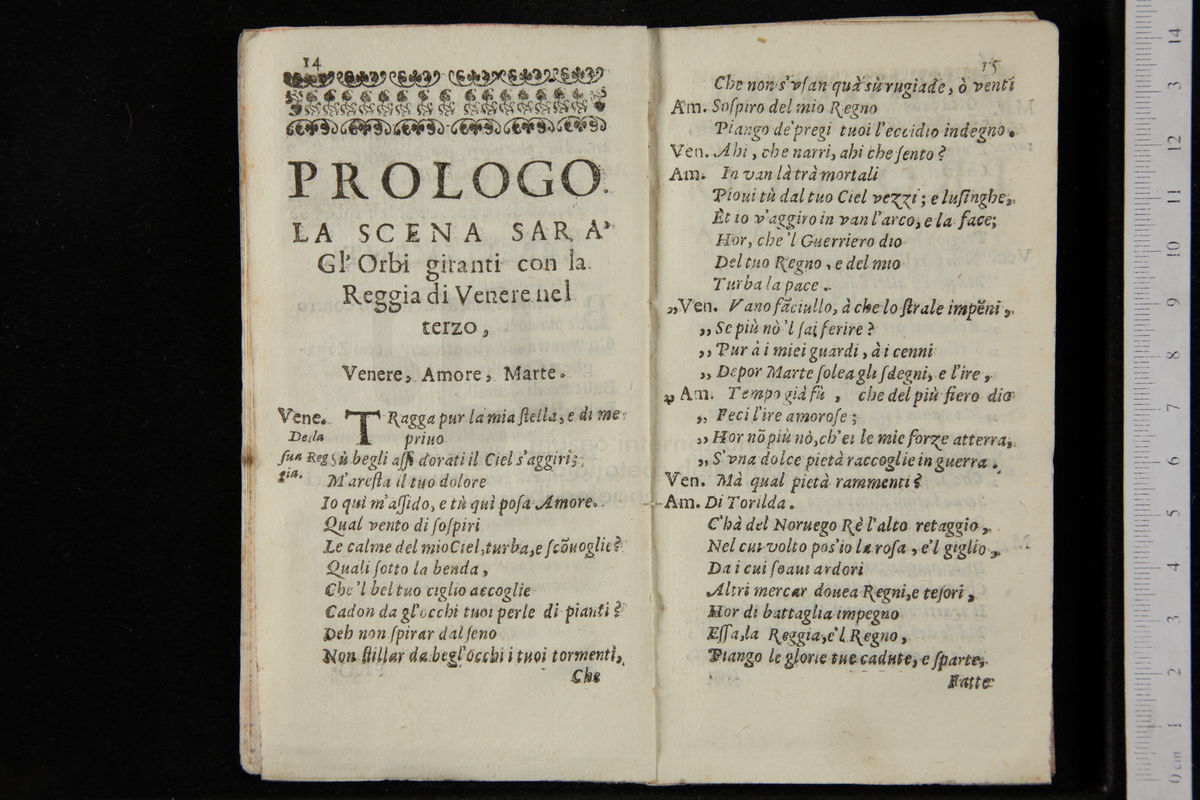 14
PROLOGO.
LA SCENA SARA'
Gl'Orbi giranti con la
Reggia di Venere nel
terzo,
Venere, Amore, Marte.
Vene. TRagga pur la mia ſtella, e di me
Della priuo
ſua Reg Sù begli aſſi dorati il Ciel s'aggiri;
gia. M'areſta il tuo dolore
Io quì m'aſſido, e tù quì poſa Amore.
Qual vento di ſoſpiri
Le calme del mio Ciel, turba, e ſcõuoglie?
Quali ſotto la benda,
Che 'l bel tuo ciglio accoglie
Cadon da gl'occhi tuoi perle di pianti?
Deh non ſpirar dal ſeno
Non ſtillar da begl'occhi i tuoi tormenti,
Che
15
Che non s'vſan quà sù rugiade, ò venti
Am. Soſpiro del mio Regno
Piango de' pregi tuoi l'eccidio indegno.
Ven. Ahi, che narri, ahi che ſento?
Am. In van là trà mortali
Pioui tù dal tuo Ciel vezzi; e luſinghe,
Et io v'aggiro in van l'arco, e la face;
Hor, che 'l Guerriero dio
Del tuo Regno, e del mio
Turba la pace.
„Ven. Vano fãciullo, à che lo ſtrale impẽni,
„ Se più nò 'l ſai ferire?
„ Pur à i miei guardi, à i cenni
„ Depor Marte ſolea gli ſdegni, e l'ire,
„ Am. Tempo già fù, che del più fiero dio
„ Feci l'ire amoroſe;
„ Hor nõ più nò, ch'ei le mie forze atterra,
„ S'vna dolce pietà raccoglie in guerra.
Ven. Mà qual pietà rammenti?
Am. Di Torilda.
C'hà del Noruego Rè l'alto retaggio,
Nel cui volto pos'io la roſa, e'l giglio,
Da i cui ſoaui ardori
Altri mercar douea Regni, e teſori,
Hor di battaglia impegno
Eſſa, la Reggia, e'l Regno,
Piango le glorie tue cadute, e ſparte,
Fatte